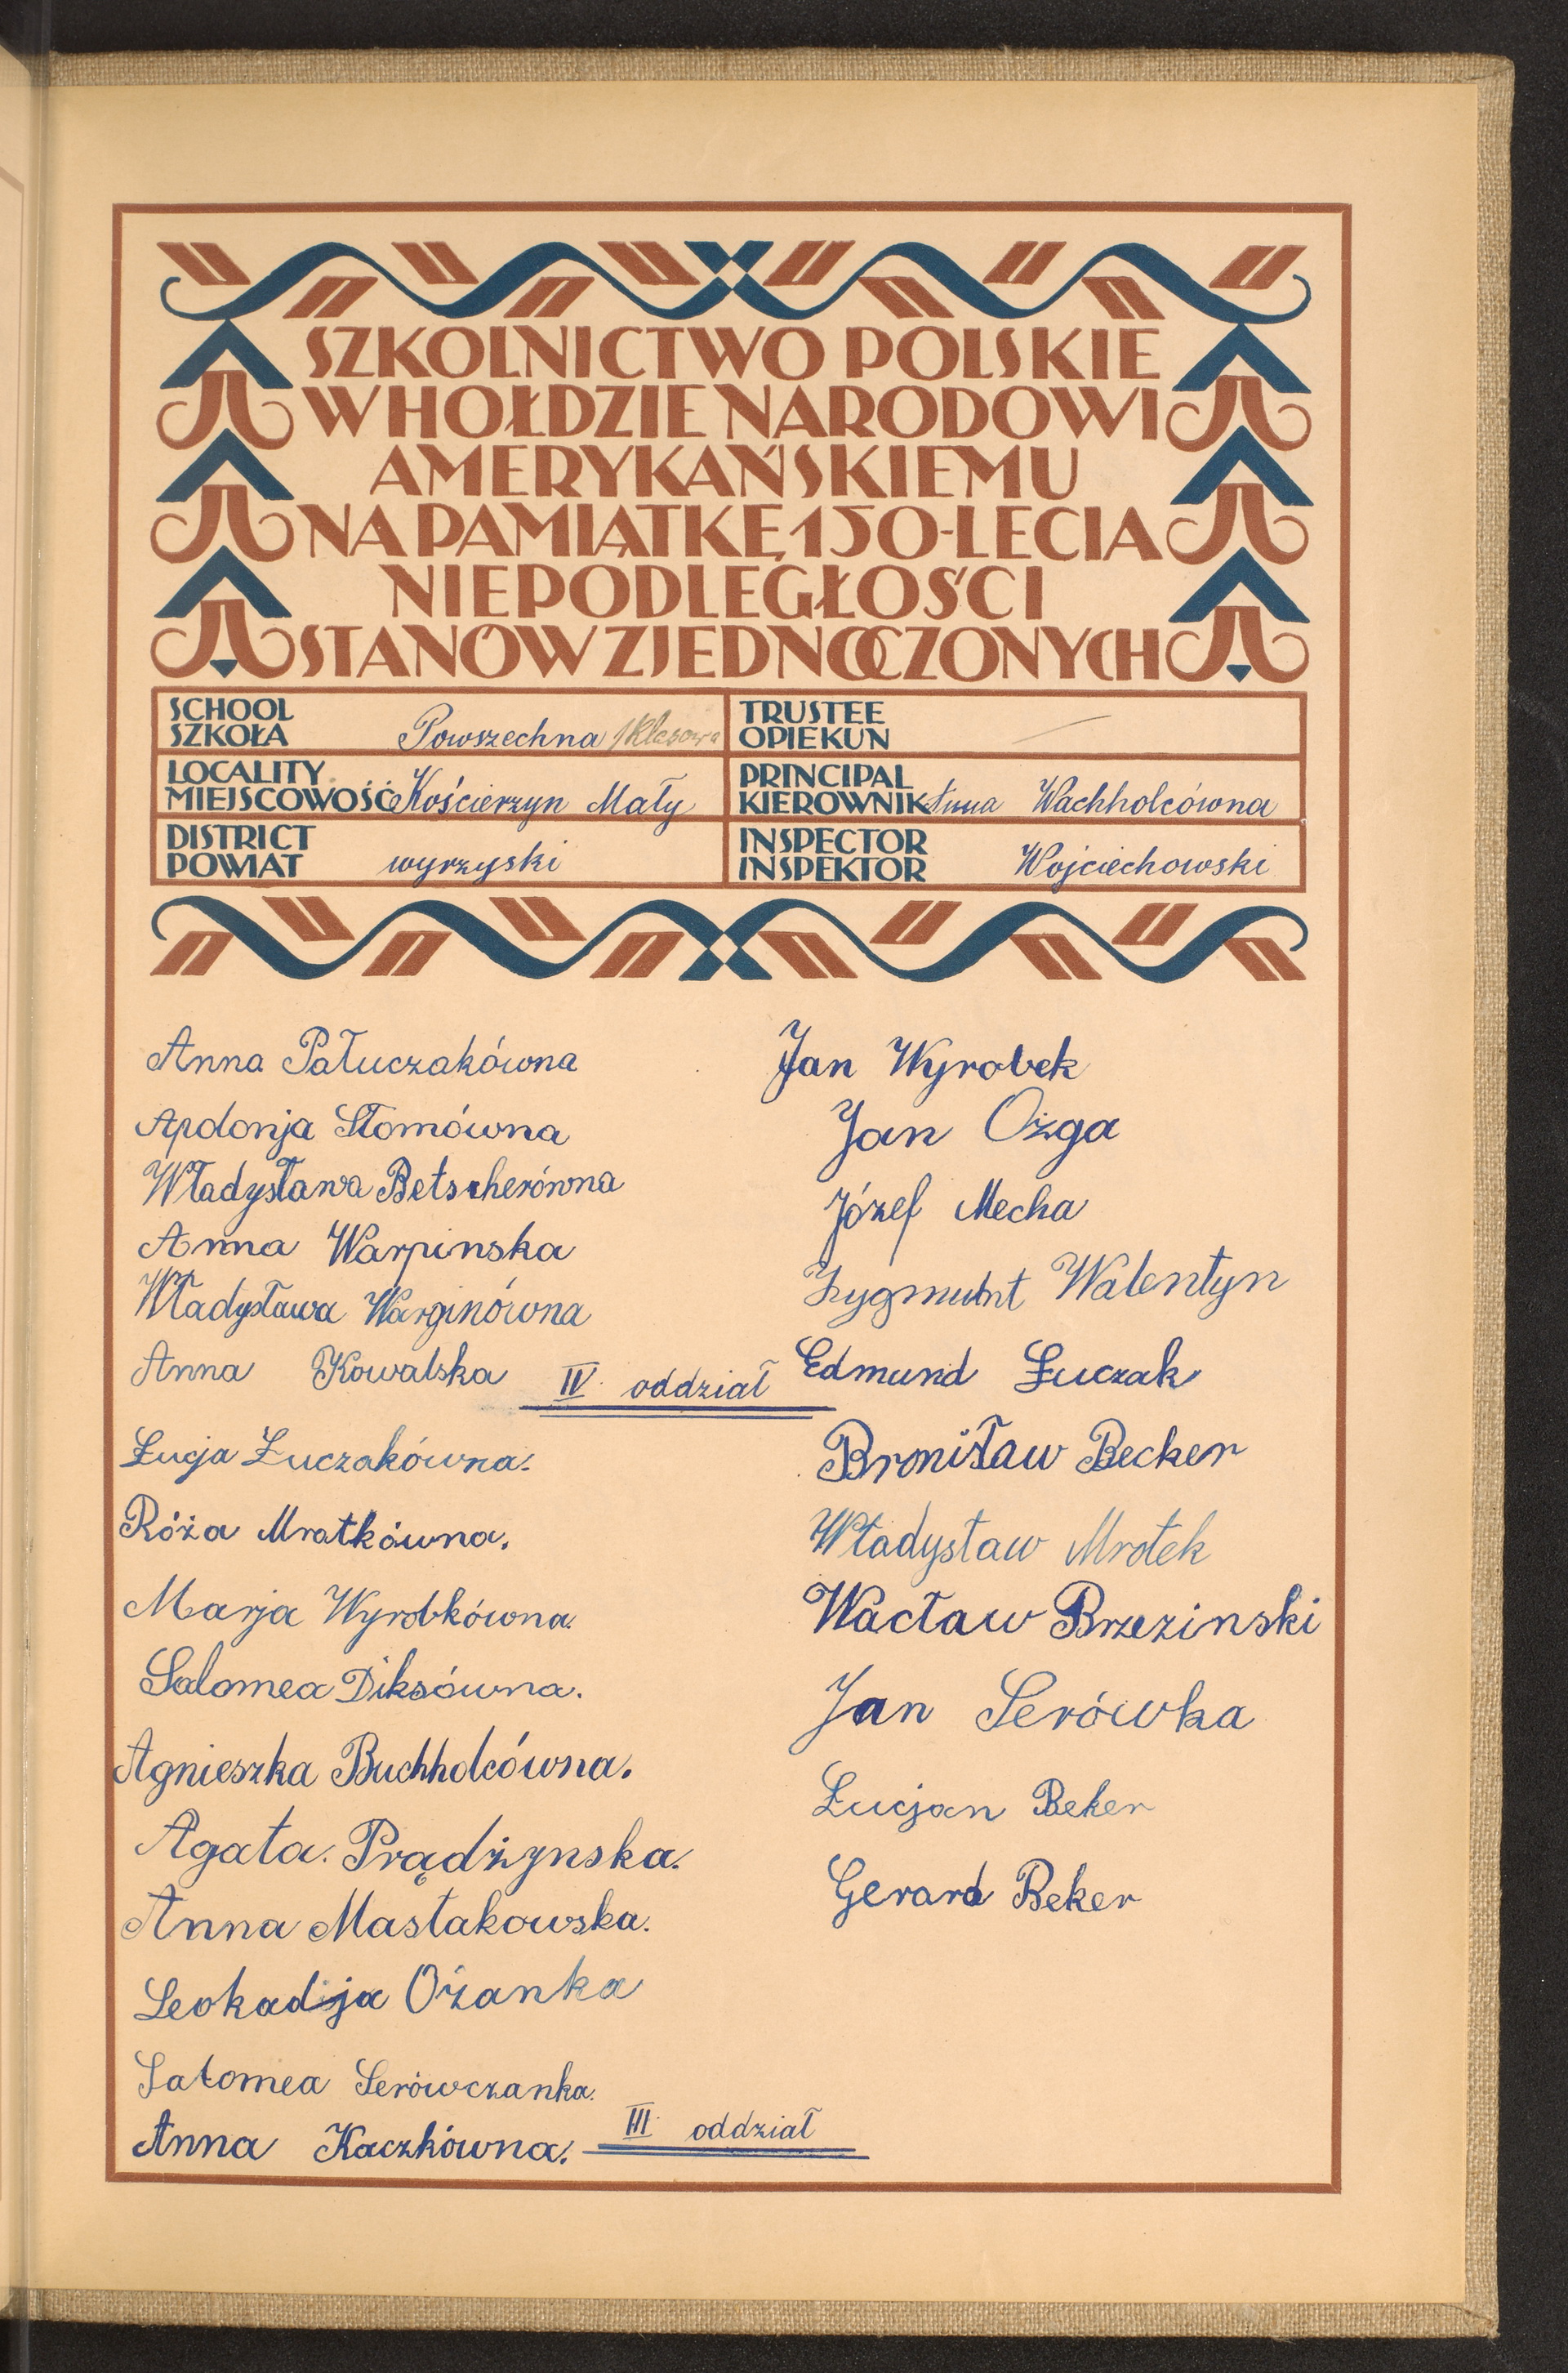 SZKOLNICTWO POLSKIE
W HOŁDZIE NARODOWI
AMERYKAŃSKIEMU
NA PAMIĄTKĘ 150-LECIA
NIEPODLEGŁOŚCI
STANÓW ZJEDNOCZONYCH
SCHOOL
SZKOŁA Powszechna 1klasowa
TRUSTEE
OPIEKUN —
LOCALITY
MIEJSCOWOŚĆ Kościerzyn Mały
PRINCIPAL
KIEROWNIK Anna Wachholcówna
DISTRICT
POWIAT wyrzyski
INSPECTOR
INSPEKTOR Wojciechowski
Anna Pałuczakówna
Apolonja Słomówna
Władysława Betscherówna
Anna Warpinska
Władysława Warginówna
Anna Kowalska IV oddział
Łucja Łuczakówna.
Róża Mratkówna.
Marja Wyrobkówna.
Salomea Diksówna.
Agnieszka Buchholcówna.
Agata. Prądżynska.
Anna Masłakowska.
Leokadja Ożanka
Salomea Serówczanka.
Anna Kaczkówna. III oddział
Jan Wyrobek
Jan Ożga
Józef Mecha
Zygmunt Walentyn
Edmund Łuczak
Bronisław Becker
Władysław Mrotek
Wacław Brzezinski
Jan Serówka
Łucjan Beker
Gerard Beker